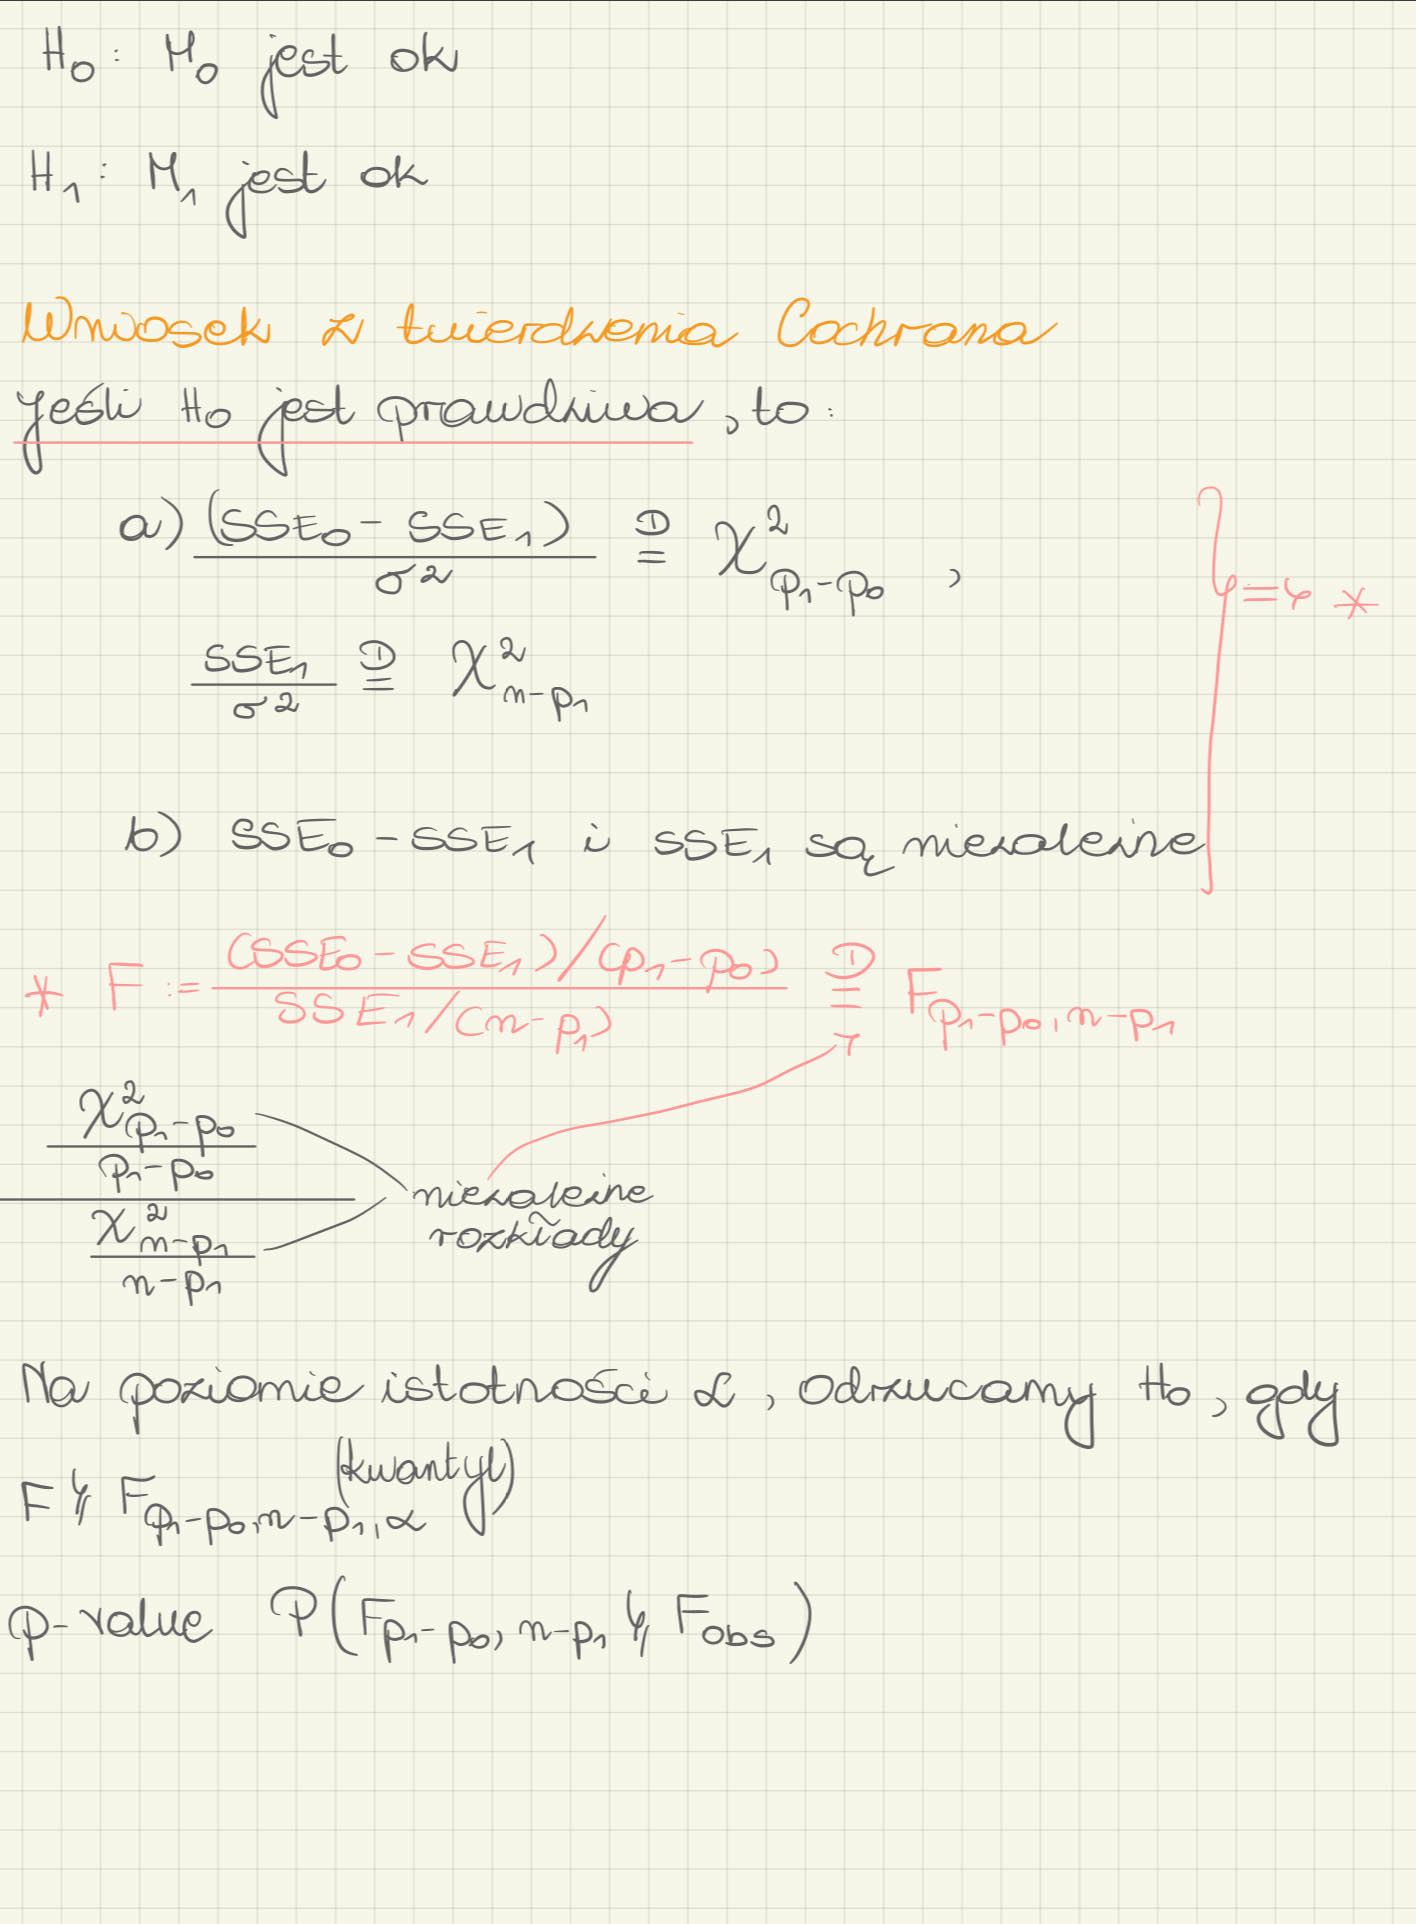 H₀: M₀ jest ok
H₁: M₁ jest ok
Wniosek z twierdzenia Cochrana
jeśli H₀ jest prawdziwa, to:
a) (SSE₀ - SSE₁) / σ² =ᴰ χ²_{p₁-p₀} ,
SSE₁ / σ² =ᴰ χ²_{n-p₁}
} => *
b) SSE₀ - SSE₁ i SSE₁ są niezależne
* F := (SSE₀ - SSE₁)/(p₁-p₀) / SSE₁/(n-p₁) =ᴰ F_{p₁-p₀, n-p₁}
χ²_{p₁-p₀} / p₁-p₀
χ²_{n-p₁} / n-p₁
niezależne
rozkłady
Na poziomie istotności α, odrzucamy H₀, gdy
(kwantyl)
F ≥ F_{p₁-p₀, n-p₁, α}
p-value P(F_{p₁-p₀, n-p₁} ≥ F_{obs})